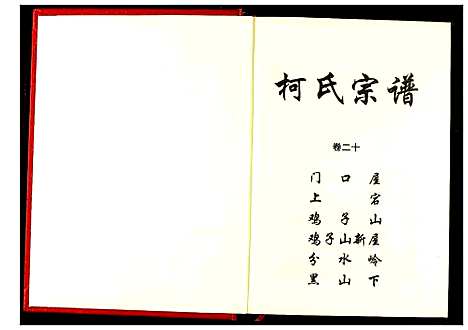 柯氏宗谱
卷二十
门口屋
上宕
鸡子山
鸡子山新屋
分水岭
黑山下